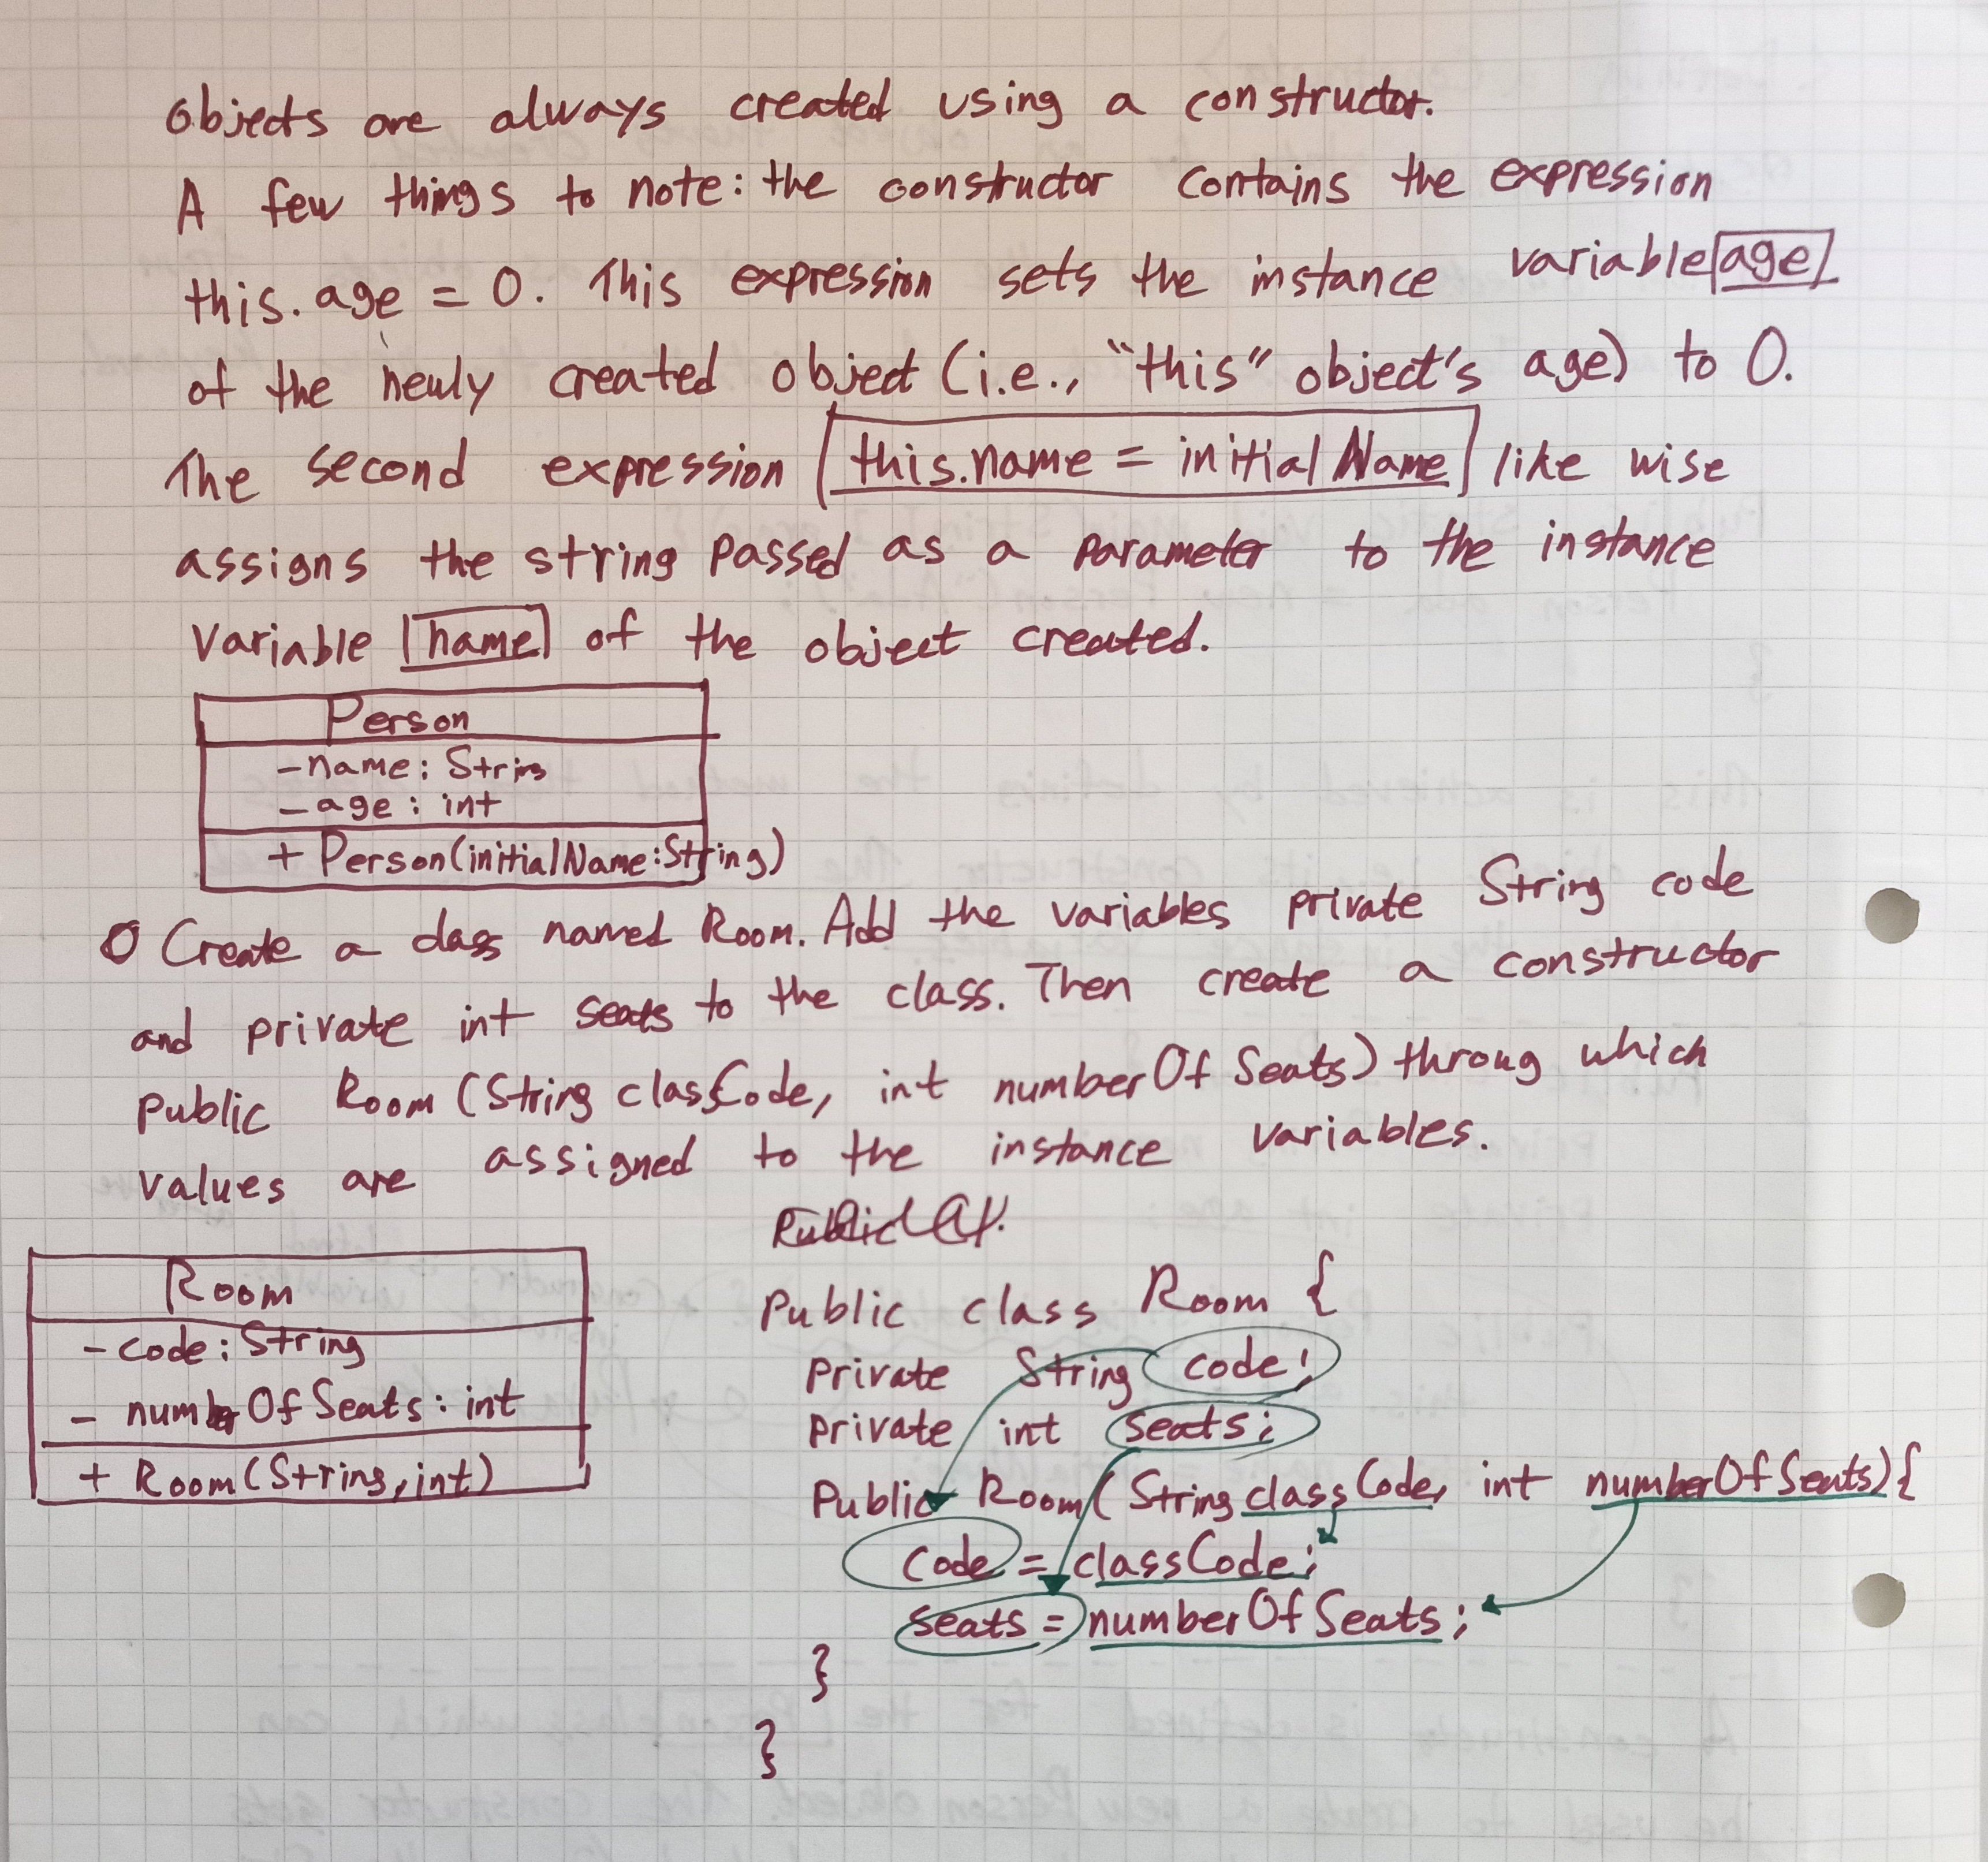 Objects are always created using a constructor.
A few things to note: the constructor contains the expression
this.age = 0. This expression sets the instance variable age
of the newly created object (i.e., "this" object's age) to 0.
The second expression this.name = initialName like wise
assigns the string passed as a parameter to the instance
variable name of the object created.
Person
- name: String
- age: int
+ Person(initialName:String)
O Create a class named Room. Add the variables private String code
and private int seats to the class. Then create a constructor
public Room (String classCode, int numberOfSeats) throug which
values are assigned to the instance variables.
Room
- code: String
- numberOfSeats: int
+ Room(String, int)
Public class Room {
private String code;
private int seats;
Public Room (String classCode, int numberOfSeats) {
code = classCode;
seats = numberOfSeats;
}
}